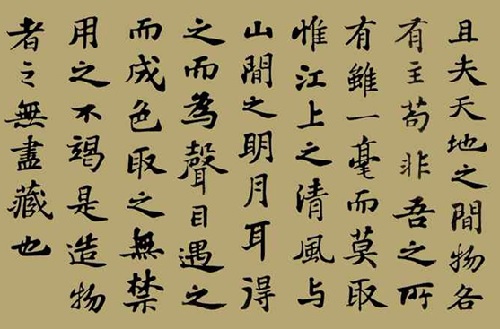 且夫天地之間物各
有主苟非吾之所
有雖一毫而莫取
惟江上之清風与
山間之明月耳得
之而為聲目遇之
而成色取之無禁
用之不竭是造物
者之無盡藏也